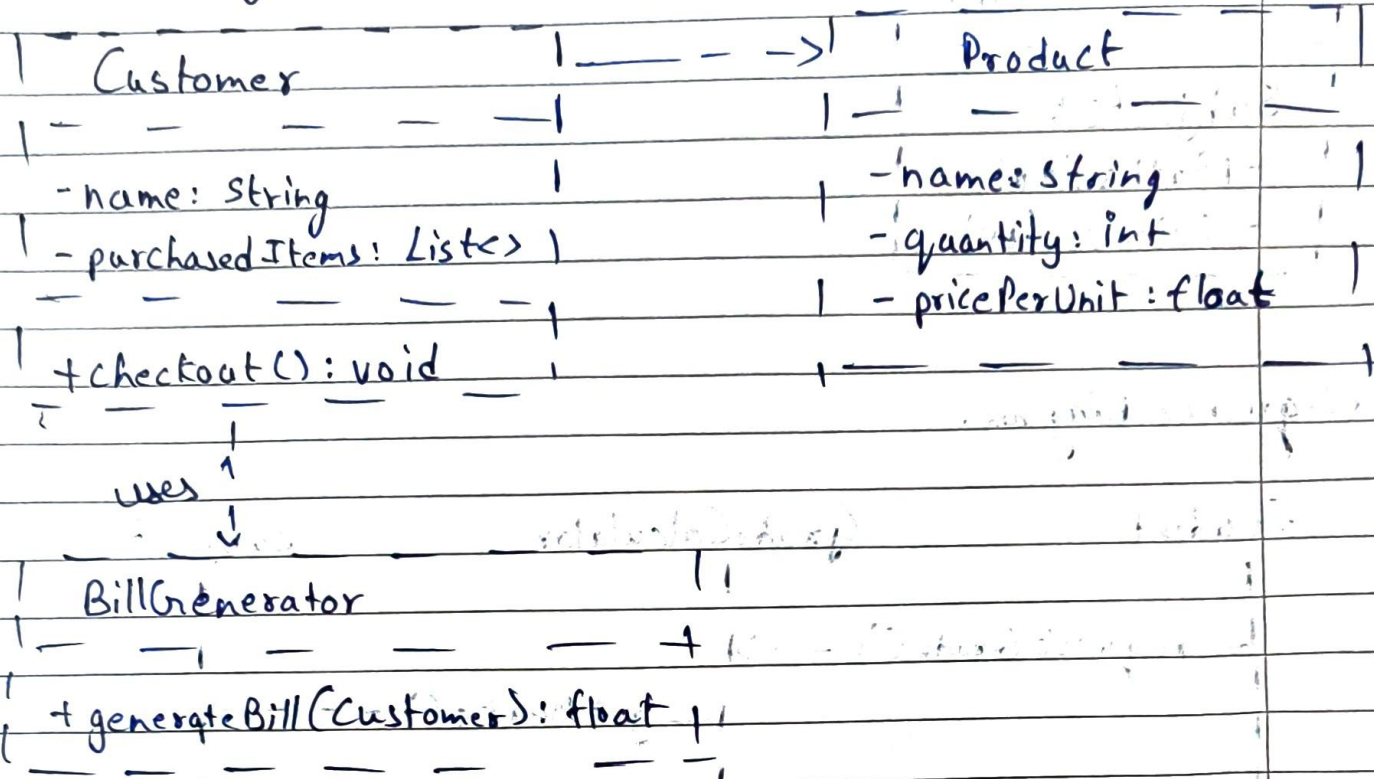 Customer
- name: String
- purchasedItems: List<>
+ checkout(): void
Product
- name: String
- quantity: int
- pricePerUnit: float
uses
BillGenerator
+ generateBill(Customer): float